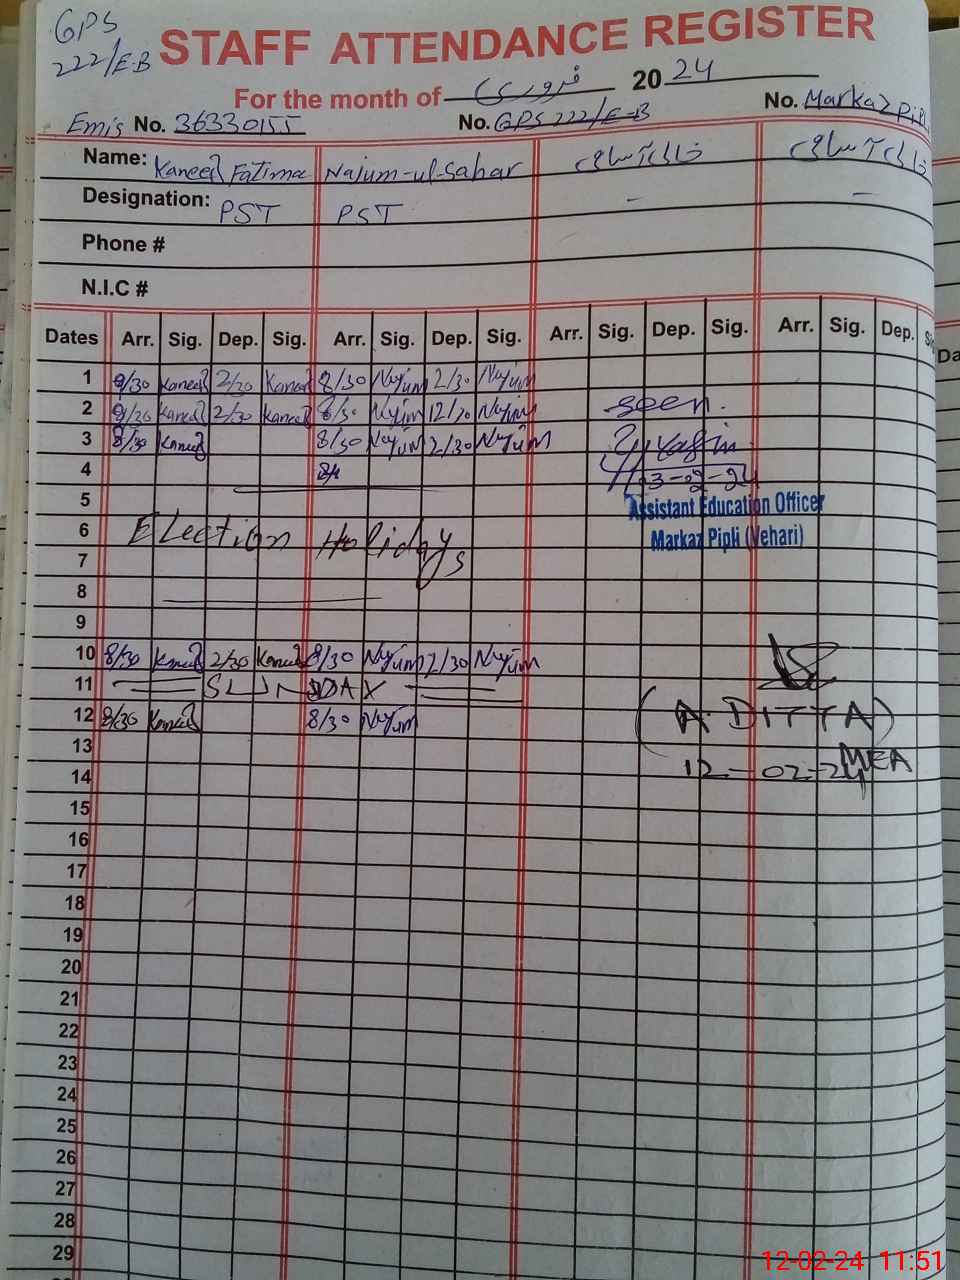 GPS
222/E-B
STAFF ATTENDANCE REGISTER
For the month of فروری 20 24
Emis No. 36330155 No. GPS 222/E-B No. Markaz
Name: Kaneez Fatima Najum-ul-Sahar خالی آسامی خالی آسامی
Designation: PST PST - -
Phone #
N.I.C #
Dates Arr. Sig. Dep. Sig. Arr. Sig. Dep. Sig. Arr. Sig. Dep. Sig. Arr. Sig. Dep.
1 8/30 Kaneez 2/30 Kaneez 8/30 Najum 2/30 Najum
2 8/30 Kaneez 2/30 Kaneez 8/30 Najum 12/30 Najum seen.
3 8/30 Kaneez 8/30 Najum 2/30 Najum
4 3-02-24
5 Assistant Education Officer
6 Election Holidays Markaz Pipli (Vehari)
7
8
9
10 8/30 Kaneez 2/30 Kaneez 8/30 Najum 2/30 Najum
11 SUNDAY
12 8/30 Kaneez 8/30 Najum (A. DITTA)
13 MEA
14 12-02-24
15
16
17
18
19
20
21
22
23
24
25
26
27
28
29
12-02-24 11:51